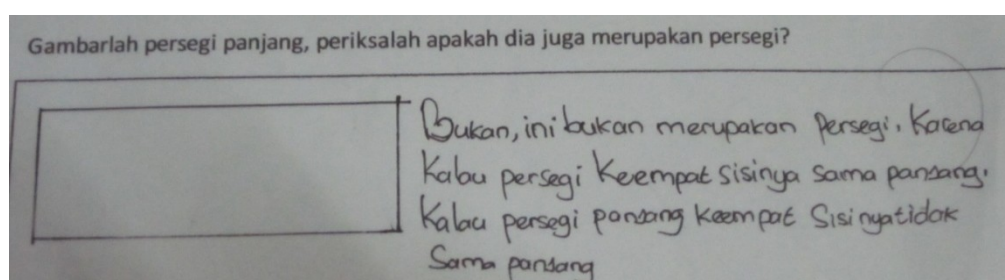 Gambarlah persegi panjang, periksalah apakah dia juga merupakan persegi?
Bukan, ini bukan merupakan Persegi, Karena
Kalau persegi Keempat sisinya sama panjang.
Kalau persegi panjang keempat Sisinya tidak
Sama panjang